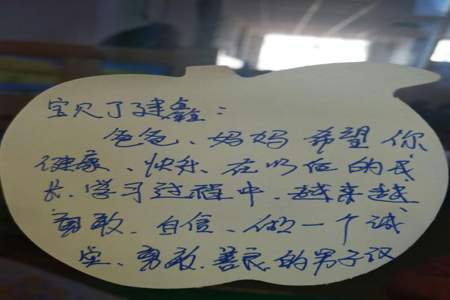 宝贝丁建鑫：
爸爸、妈妈希望你
健康、快乐、在以后的成
长、学习过程中、越来越
勇敢、自信、做一个诚
实、勇敢、善良的男子汉